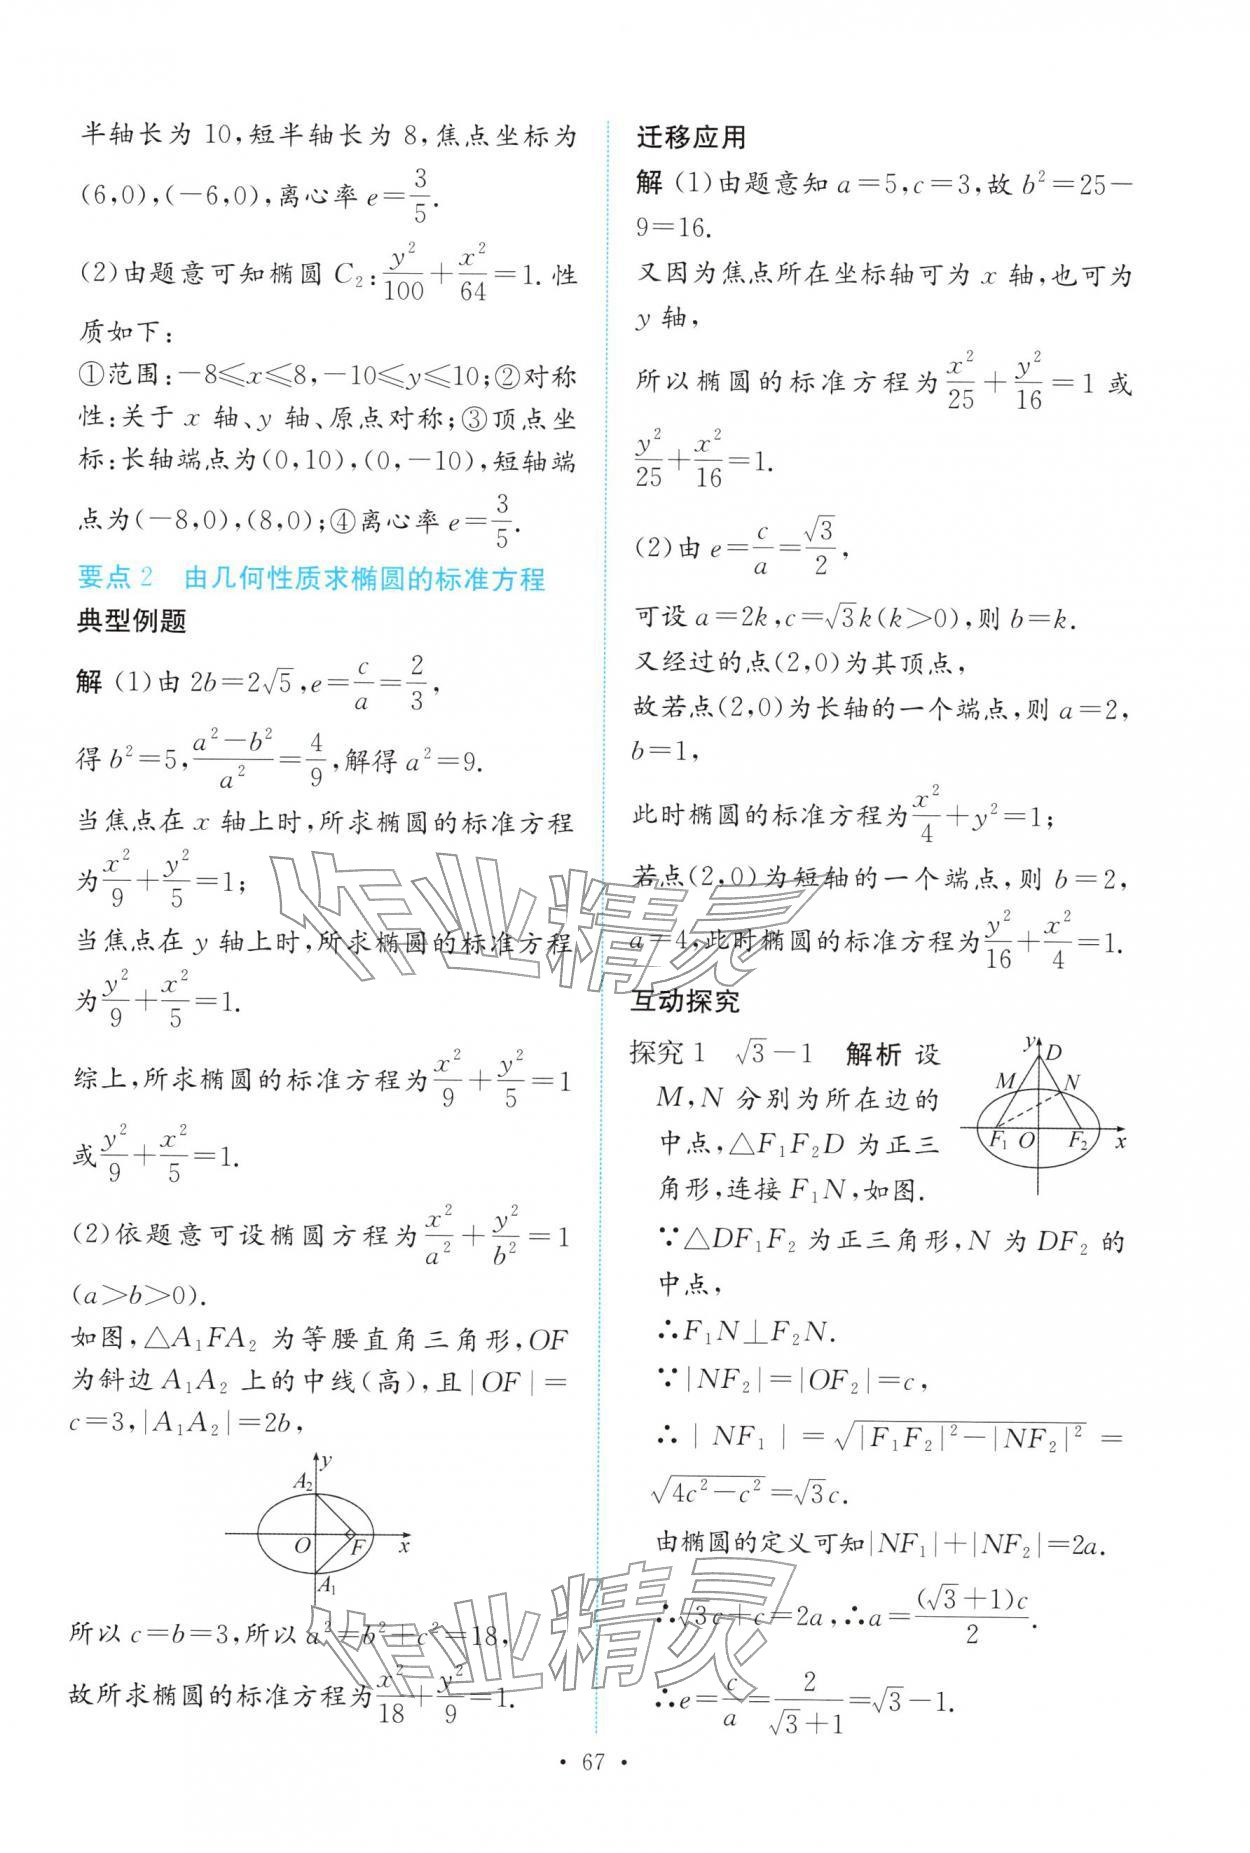 半轴长为 10,短半轴长为 8,焦点坐标为
(6,0),(-6,0),离心率 e=3/5.
(2)由题意可知椭圆 C₂:y²/100+x²/64=1. 性
质如下:
①范围:-8≤x≤8,-10≤y≤10;②对称
性:关于 x 轴、y 轴、原点对称;③顶点坐
标:长轴端点为(0,10),(0,-10),短轴端
点为(-8,0),(8,0);④离心率 e=3/5.
要点 2 由几何性质求椭圆的标准方程
典型例题
解 (1)由 2b=2√5,e=c/a=2/3,
得 b²=5,(a²-b²)/a²=4/9,解得 a²=9.
当焦点在 x 轴上时,所求椭圆的标准方程
为x²/9+y²/5=1;
当焦点在 y 轴上时,所求椭圆的标准方程
为y²/9+x²/5=1.
综上,所求椭圆的标准方程为x²/9+y²/5=1
或y²/9+x²/5=1.
(2)依题意可设椭圆方程为x²/a²+y²/b²=1
(a>b>0).
如图,△A₁FA₂ 为等腰直角三角形,OF
为斜边 A₁A₂ 上的中线(高),且|OF|=
c=3,|A₁A₂|=2b,
y
A₂
O F x
A₁
所以 c=b=3,所以 a²=b²+c²=18,
故所求椭圆的标准方程为x²/18+y²/9=1.
迁移应用
解 (1)由题意知 a=5,c=3,故 b²=25-
9=16.
又因为焦点所在坐标轴可为 x 轴,也可为
y 轴,
所以椭圆的标准方程为x²/25+y²/16=1 或
y²/25+x²/16=1.
(2)由 e=c/a=√3/2,
可设 a=2k,c=√3k(k>0),则 b=k.
又经过的点(2,0)为其顶点,
故若点(2,0)为长轴的一个端点,则 a=2,
b=1,
此时椭圆的标准方程为x²/4+y²=1;
若点(2,0)为短轴的一个端点,则 b=2,
a=4,此时椭圆的标准方程为y²/16+x²/4=1.
互动探究
探究 1 √3-1 解析 设
M,N 分别为所在边的
中点,△F₁F₂D 为正三
角形,连接 F₁N,如图.
y D
M N
F₁ O F₂ x
∵△DF₁F₂ 为正三角形,N 为 DF₂ 的
中点,
∴F₁N⊥F₂N.
∵|NF₂|=|OF₂|=c,
∴|NF₁|=√(|F₁F₂|²-|NF₂|²)=
√(4c²-c²)=√3c.
由椭圆的定义可知|NF₁|+|NF₂|=2a.
∴√3c+c=2a,∴a=(√3+1)c/2.
∴e=c/a=2/(√3+1)=√3-1.
作业精灵
作业精灵
• 67 •